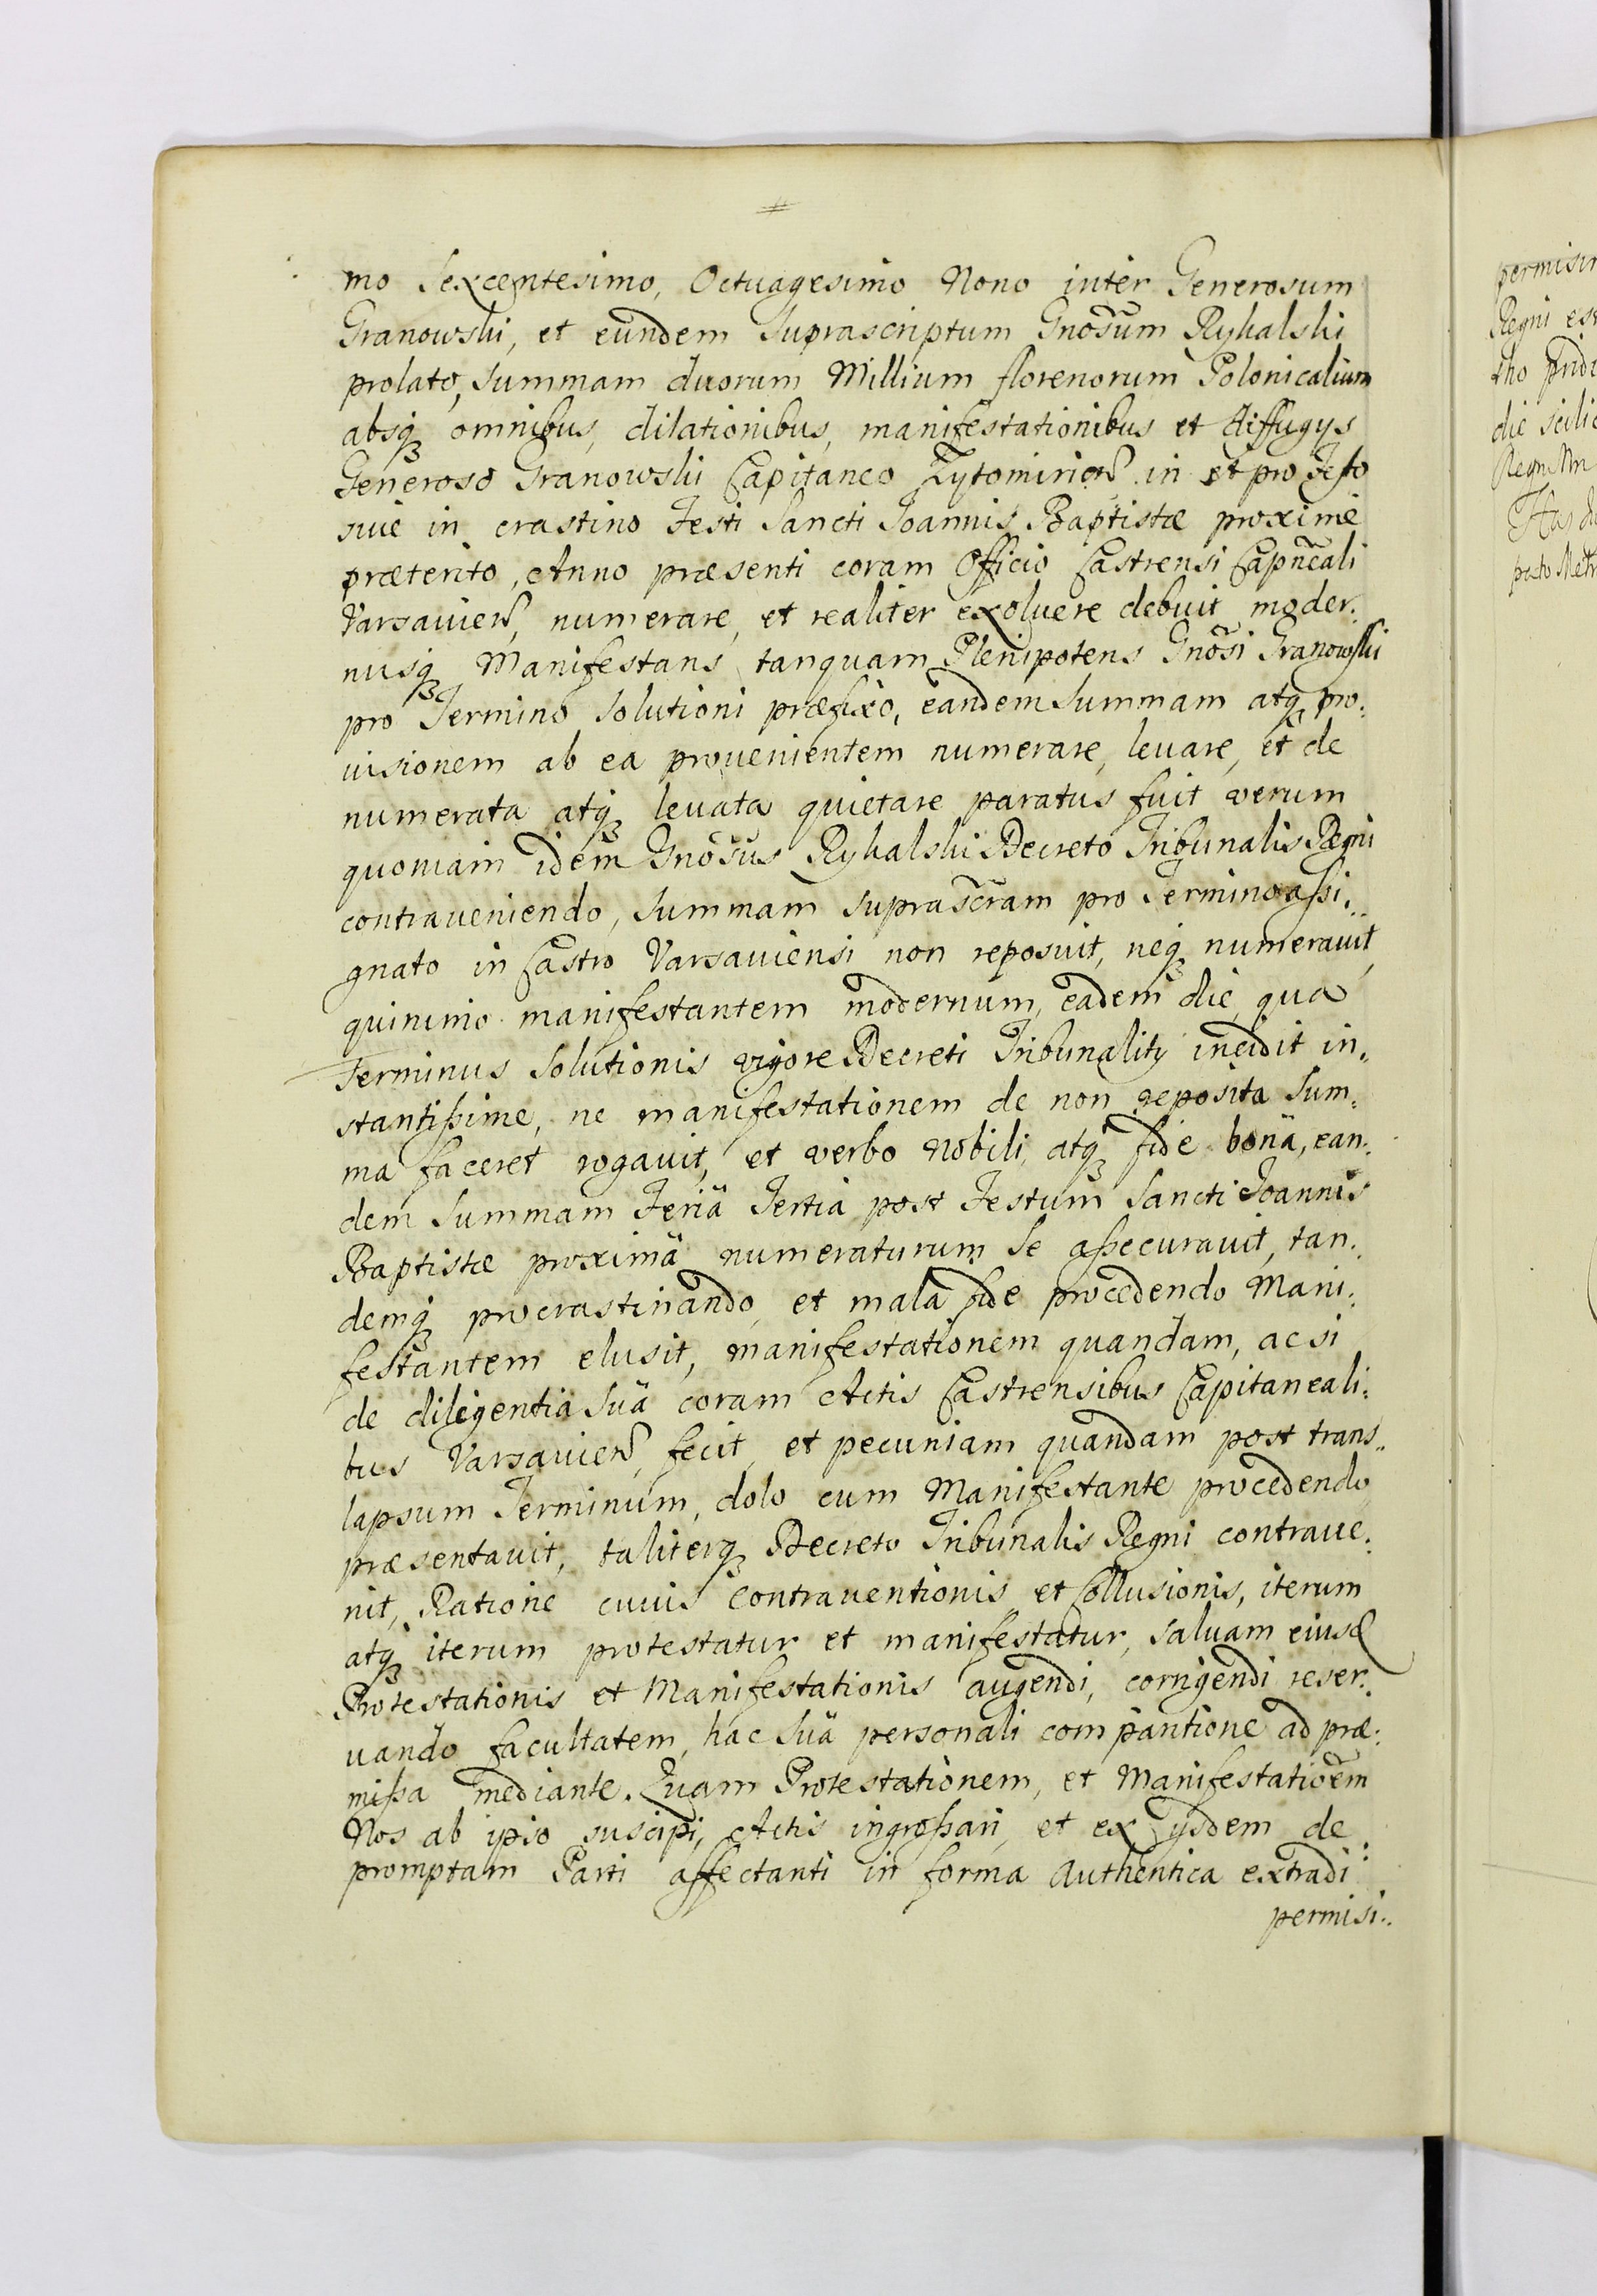 mo Sexcentesimo, Octuagesimo Nono inter Generosum
Granowski, et eundem Suprascriptum Gnosum Rykalski
prolato, Summam duorum Millium florenorum Polonicalium
absq omnibus, dilationibus, manifestationibus et diffugys
Generoso Granowski Capitaneo Zytomirien. in et pro Festo
siue in crastino Festi Sancti Joannis Baptistæ proxime
præterito, Anno præsenti coram Officio Castrensi Capnēali
Varsauien, numerare, et realiter exoluere debuit moder:
nusq Manifestans tanquam Plenipotens Gnosi Granowski
pro Termino Solutioni præfixo, eandem Summam atq pro:
uisionem ab ea prouenientem numerare, leuare, et de
numerata atq leuata quietare paratus fuit verum
quoniam idem Gnosus Rykalski Decreto Tribunalis Regni
contraueniendo, Summam suprascram pro Termino assi:
gnato in Castro Varsauiensi non reposuit, neq numerauit,
quinimo manifestantem modernum, eadem die, qua
Terminus Solutionis vigore Decreti Tribunality incidit in:
stantissime, ne manifestationem de non reposita Sum:
ma faceret rogauit, et verbo Nobili, atq fide bonä, ean:
dem Summam Feriä Tertia post Festum Sancti Joannis
Baptistæ proximä numeraturum Se assecurauit, tan:
demq procrastinando, et mala fide procedendo Mani:
festantem elusit, manifestationem quandam, ac si
de diligentia Suä coram Actis Castrensibus Capitaneali:
bus Varsauien, fecit, et pecuniam quandam post trans:
lapsum Terminum, dolo cum Manifestante procedendo
præsentauit, taliterq Decreto Tribunalis Regni contraue:
nit, Ratione cuius Contrauentionis et Collusionis, iterum
atq iterum protestatur et manifestatur, saluam eiusd
Protestationis et Manifestationis augendi, corrigendi reser:
uando facultatem, hac Suä personali compantione ad præ:
missa mediante. Quam Protestationem, et Manifestatioem
Nos ab ipso suscipi, Actis ingrossari, et ex ijsdem de
promptam Parti affectanti in forma Authentica extradi
permisi:
permisi
Regni
die
Regn